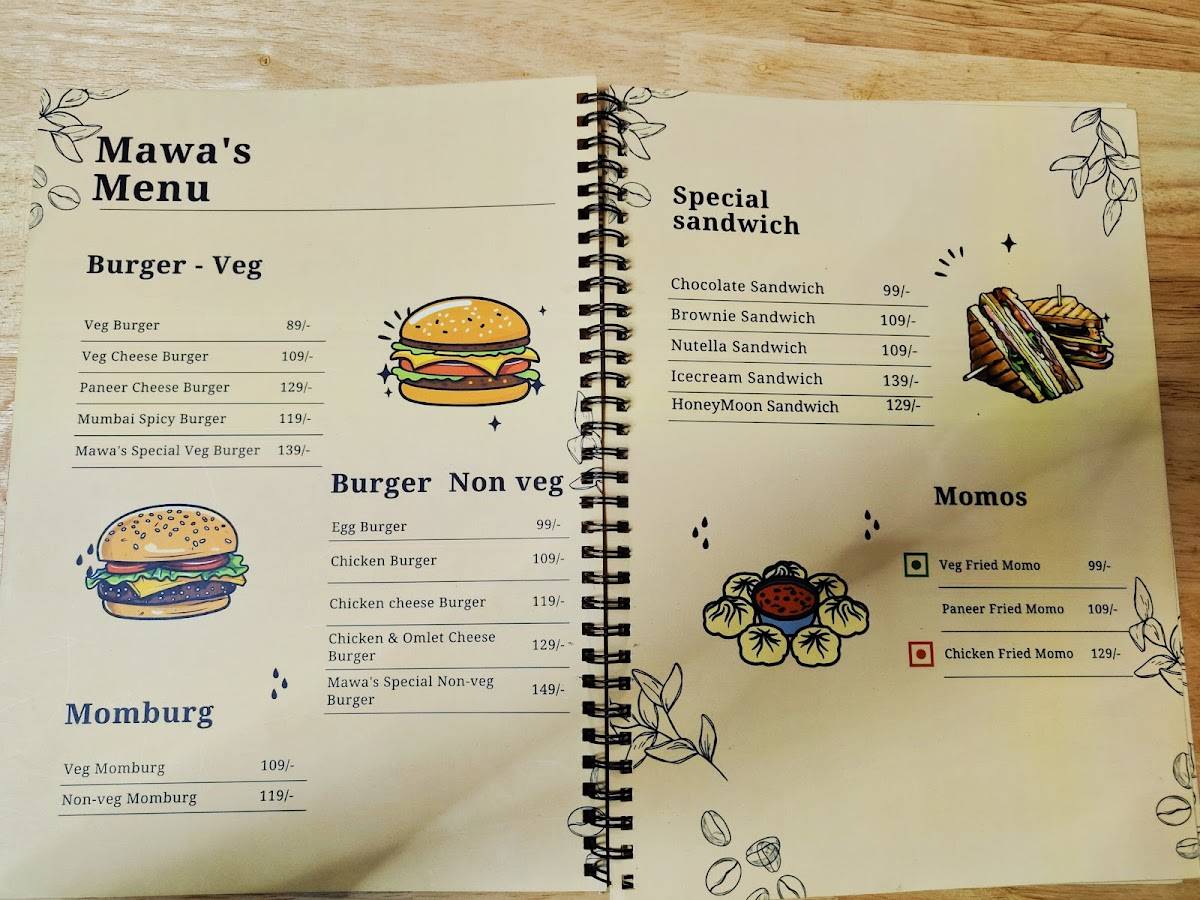 Mawa's
Menu
Burger - Veg
Veg Burger 89/-
Veg Cheese Burger 109/-
Paneer Cheese Burger 129/-
Mumbai Spicy Burger 119/-
Mawa's Special Veg Burger 139/-
Burger Non veg
Egg Burger 99/-
Chicken Burger 109/-
Chicken cheese Burger 119/-
Chicken & Omlet Cheese
Burger 129/-
Mawa's Special Non-veg
Burger 149/-
Momburg
Veg Momburg 109/-
Non-veg Momburg 119/-
Special
sandwich
Chocolate Sandwich 99/-
Brownie Sandwich 109/-
Nutella Sandwich 109/-
Icecream Sandwich 139/-
HoneyMoon Sandwich 129/-
Momos
Veg Fried Momo 99/-
Paneer Fried Momo 109/-
Chicken Fried Momo 129/-